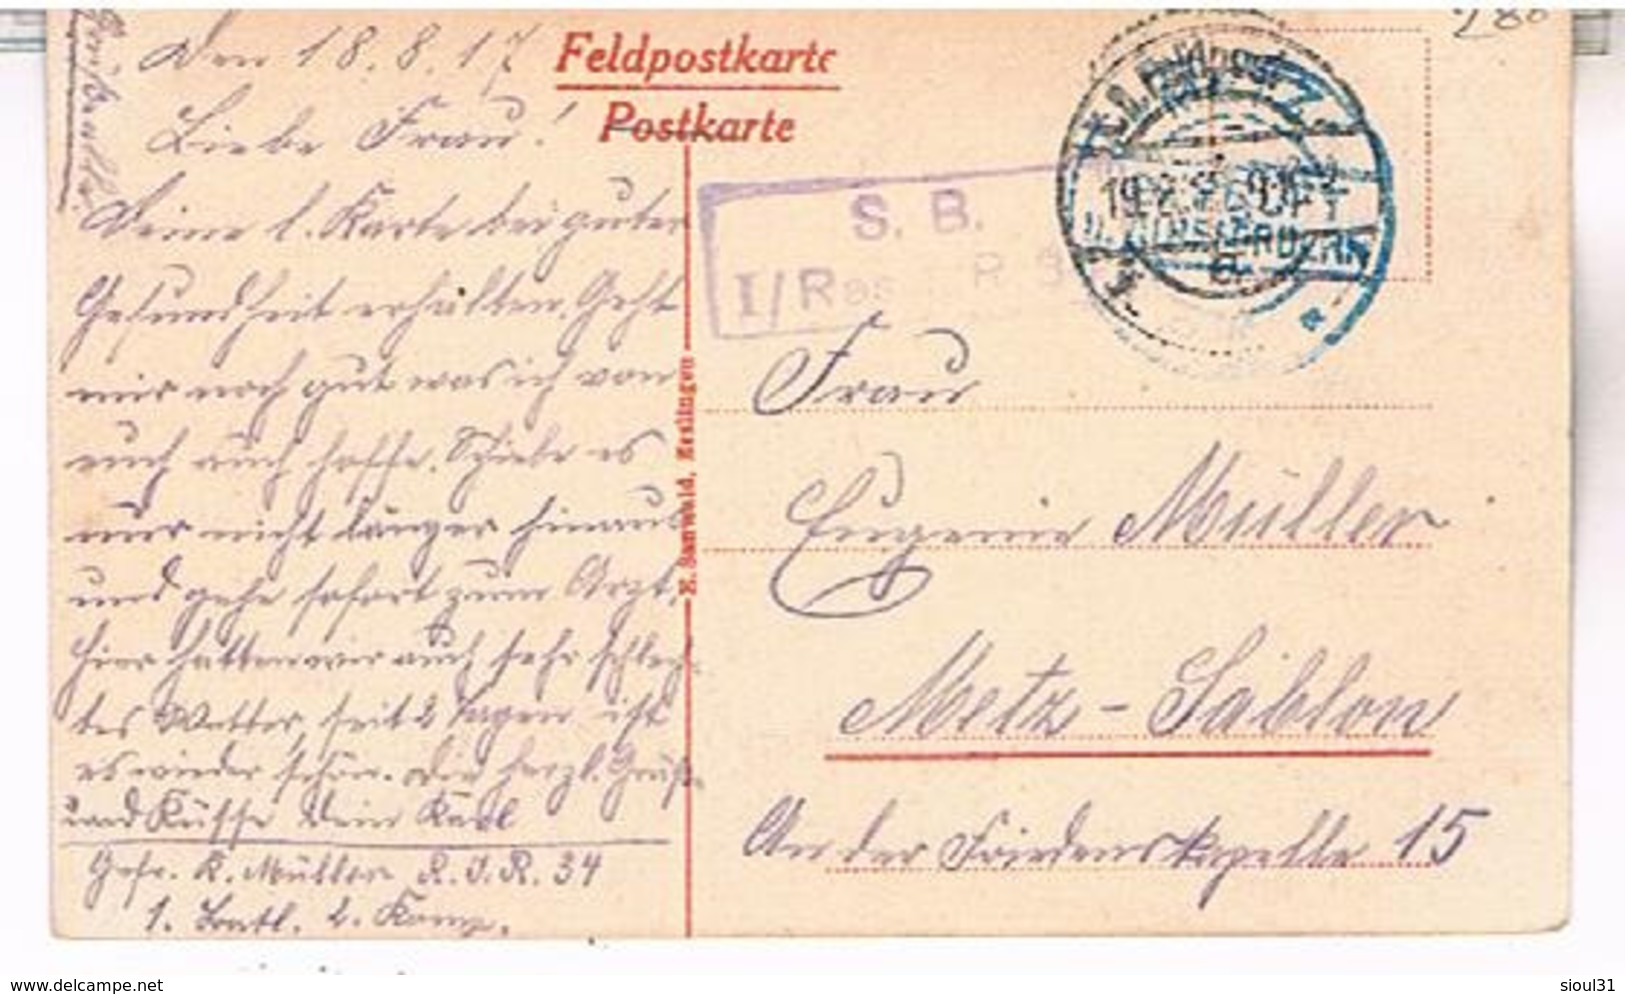 Den 18.8.17
Feldpostkarte
Postkarte
Liebe Frau!
Deine l. Karte bei guter
Gesundheit erhalten. Geht
mir noch gut was ich von
euch auch hoffe. Schiebe es
nur nicht länger hinaus
und gehe sofort zum Arzt.
Hier hatten wir auch sehr schlech-
tes Wetter, seit 2 Tagen ist
es wieder schön. Die herzl. Grüße
und Küsse Dein Karl
Gefr. K. Müller R.I.R. 34
1. Batl. 2. Komp.
E. Sanwald, Esslingen
S. B.
I/Res R 3
Frau
Eugenie Müller
Metz-Sablon
An der Friedenskapelle 15
www.delcampe.net
sioul31